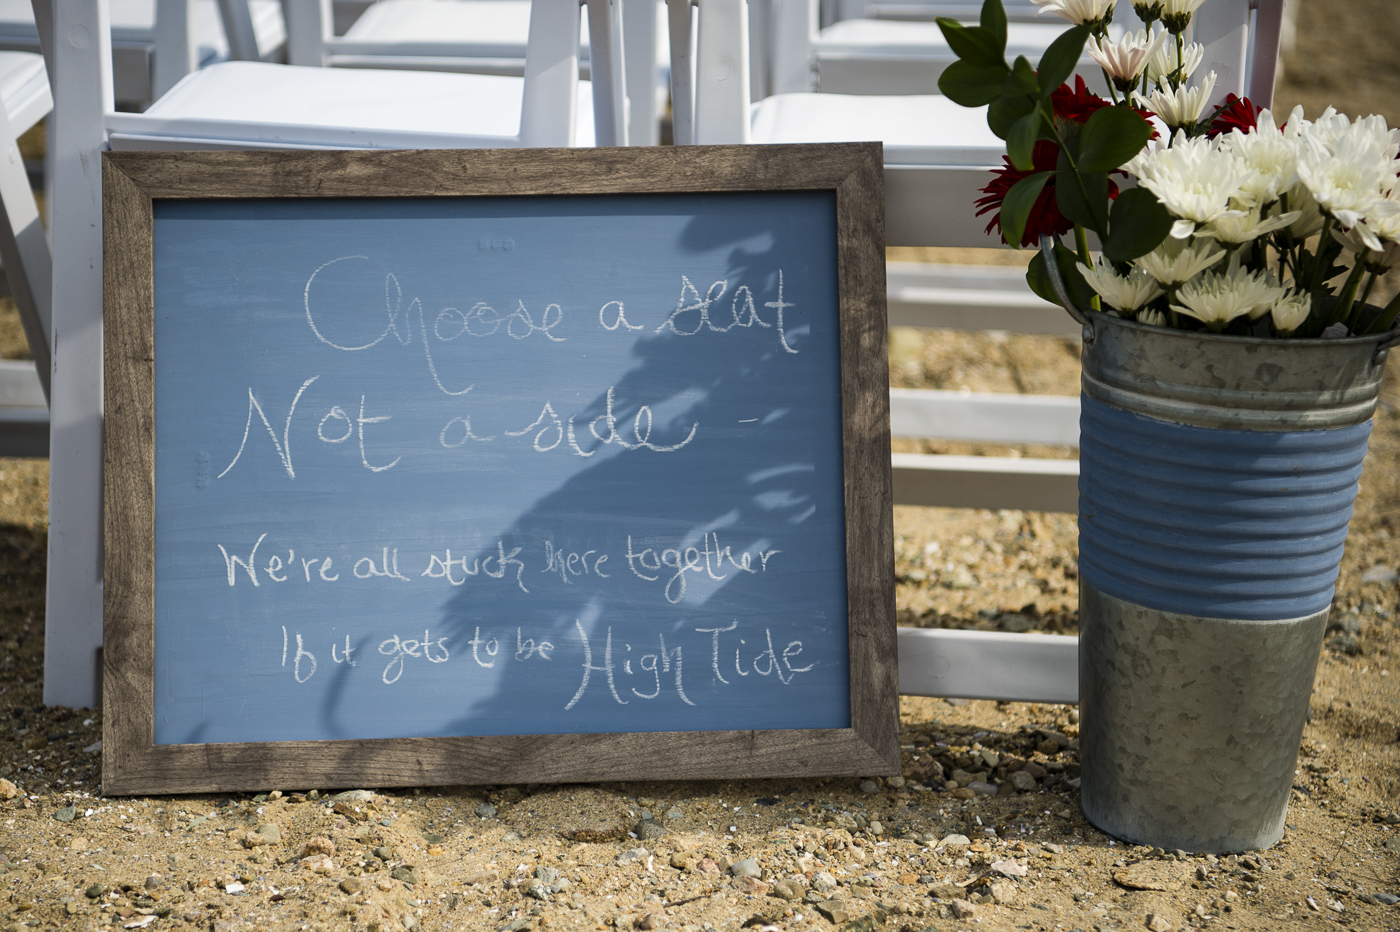 Choose a seat
Not a side -
We're all stuck here together
If it gets to be High Tide